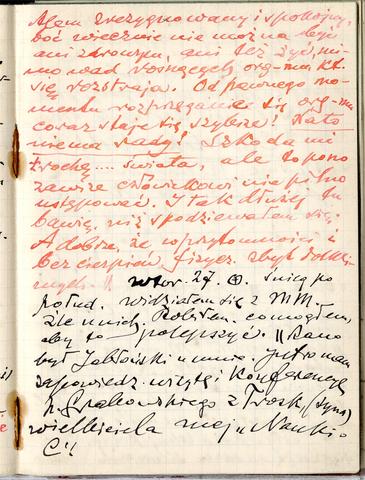 Jestem zrezygnowany i spokojny,
boć wiecznie nie można być
ani zdrowym, ani też żyć, mi-
mo wad rosnących org-mu, kt.
się rozstraja. Od pewnego mo-
mentu rozprzęganie się org-mu
coraz staje się szybsze! Na to
niema rady! Szkoda mi
trochę.... świata, ale to pono
zawsze człowiekowi nie pilno
ustępować. I tak dłużej tu
bawię, niż spodziewałem się.
A dobrze, że w przytomności i
bez cierpień fizycz. zbyt dotkli-
wych. ||
wtor. 27. Śnieg po
połud. widziałem się z MM.
Źle u nich. Robiłem, co mogłem,
aby to polepszyć. || Rano
był Jabłoński u mnie. Jutro mam
zapowiedz. wizytę i konferencyę
p. Grabowskiego z Trosk. (syna)
wielbiciela mej "Nauki o
C"!